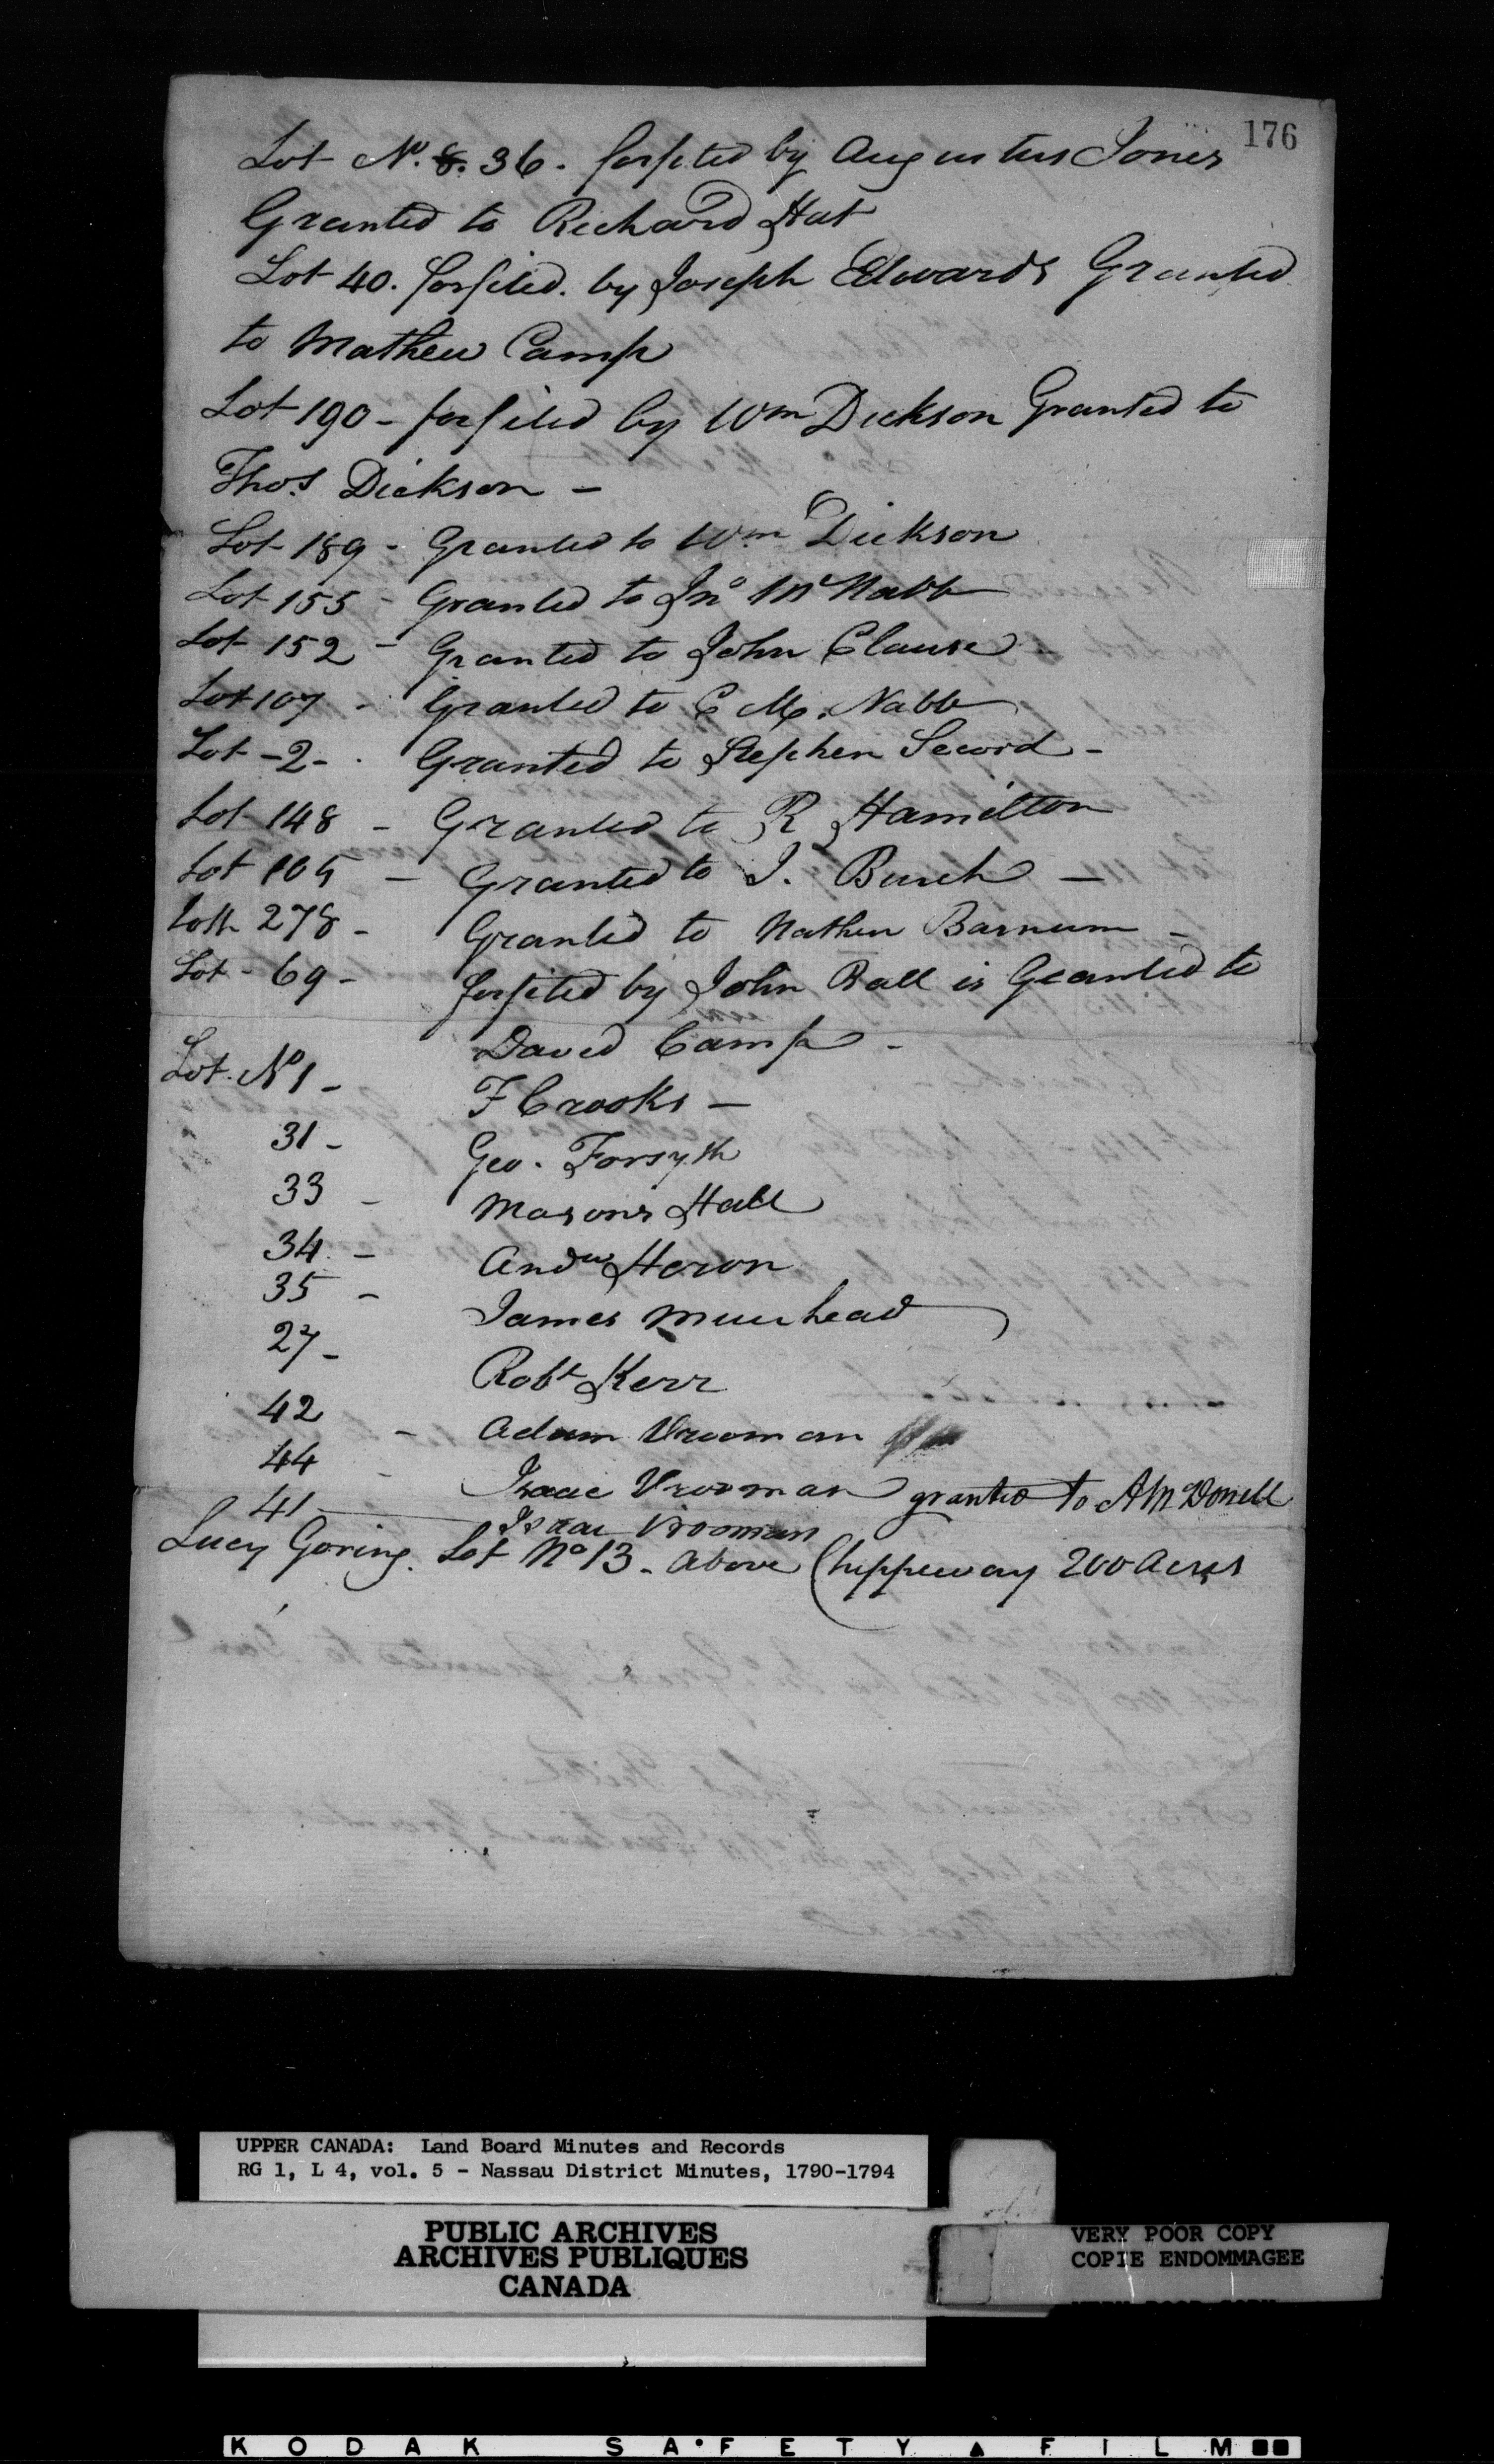 176
Lot No. 8. 36. forfeted by Augustus Jones
Granted to Richard Hat
Lot 40. forfited. by Joseph Edwards Granted
to Mathew Camp
Lot 190 - forfited by Wm Dickson Granted to
Thos. Dickson -
Lot 189 - Granted to Wm Dickson
Lot 155 - Granted to Jno McNabb
Lot 152 - Granted to John Clause
Lot 107 - Granted to C Mc. Nabb
Lot -2- . Granted to Stephen Secord -
Lot 148 - Granted to R Hamilton
Lot 105 - Granted to J. Burch -
Lott 278 - Granted to Nathen Barnum -
Lot - 69 - forfited by John Ball is Granted to
David Camp -
Lot. No 1 - F Crooks -
31 - Geo. Forsyth
33 - Masons Hall
34 - Andw Heron
35 - James Muirhead
27 - Robt Kerr
42 - Adam Vrooman
44 - Isaac Vrooman granted to A McDonell
41 - Isaac Vrooman
Lucy Goring. Lot No 13 - above Chippeway 200 Acres
UPPER CANADA: Land Board Minutes and Records
RG 1, L 4, vol. 5 - Nassau District Minutes, 1790-1794
PUBLIC ARCHIVES
ARCHIVES PUBLIQUES
CANADA
VERY POOR COPY
COPIE ENDOMMAGEE
KODAK SAFETY FILM